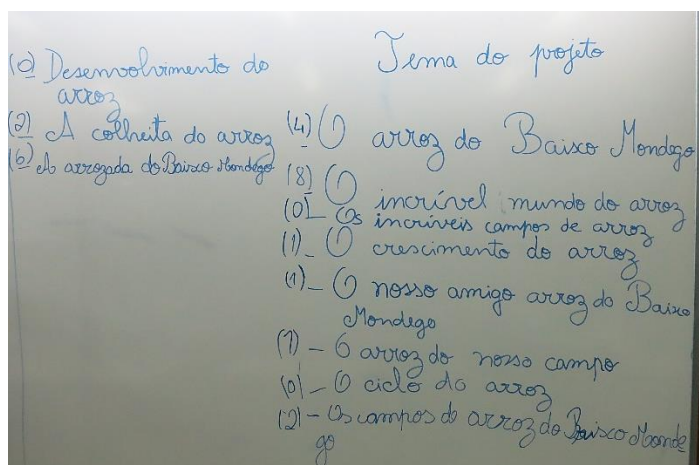 Tema do projeto
(0) Desenvolvimento do
arroz
(2) A colheita do arroz
(6) A arrozada do Baixo Mondego
(4) O arroz do Baixo Mondego
(8) O incrível mundo do arroz
(0)_ Os incríveis campos de arroz
(1)_ O crescimento do arroz
(1)_ O nosso amigo arroz do Baixo
Mondego
(1) - O arroz do nosso campo
(0)_ O ciclo do arroz
(2) - Os campos de arroz do Baixo Monde
go